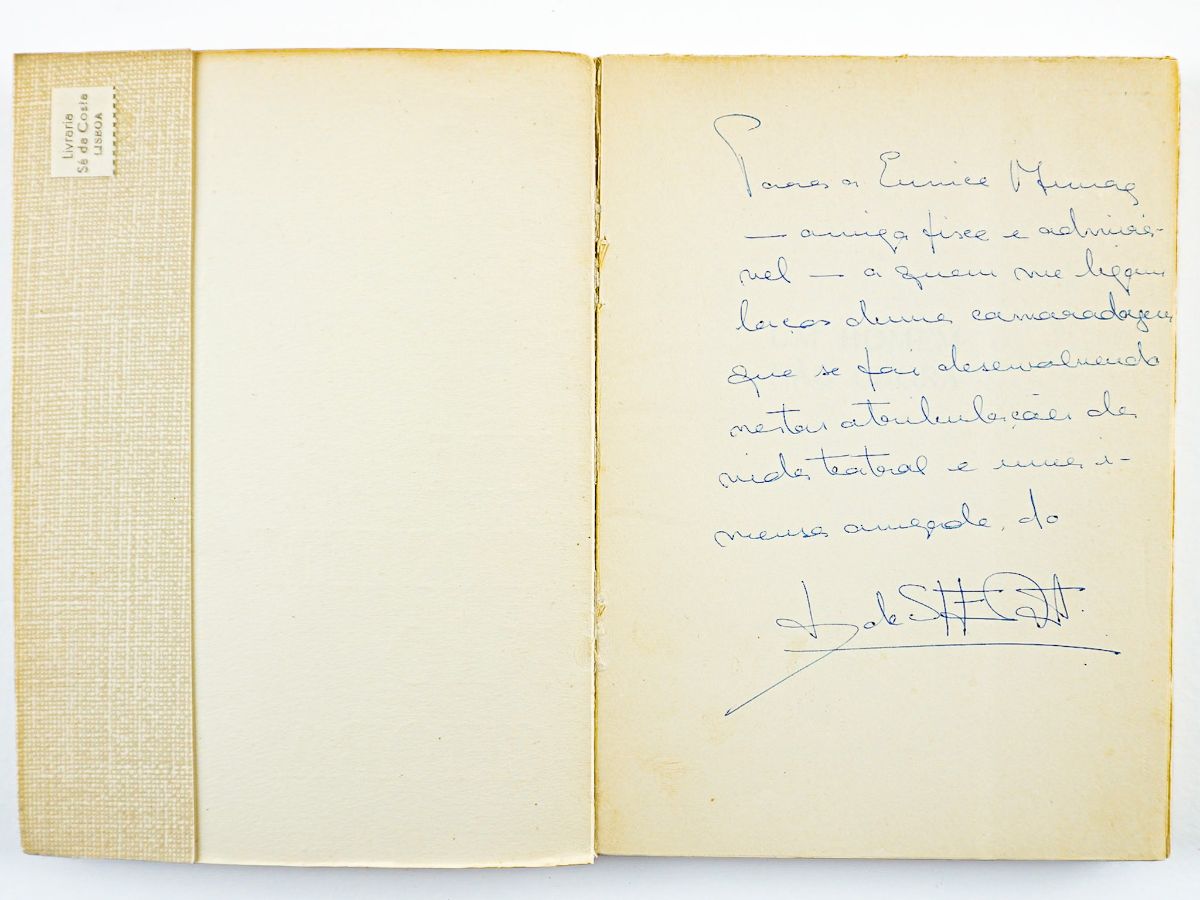 Livraria
Sá da Costa
LISBOA
Para a Eunice Munoz
— amiga fixe e admirá-
vel — a quem me ligam
laços duma camaradagem
que se foi desenvolvendo
nestas atribulações da
vida teatral e uma i-
mensa amizade, do